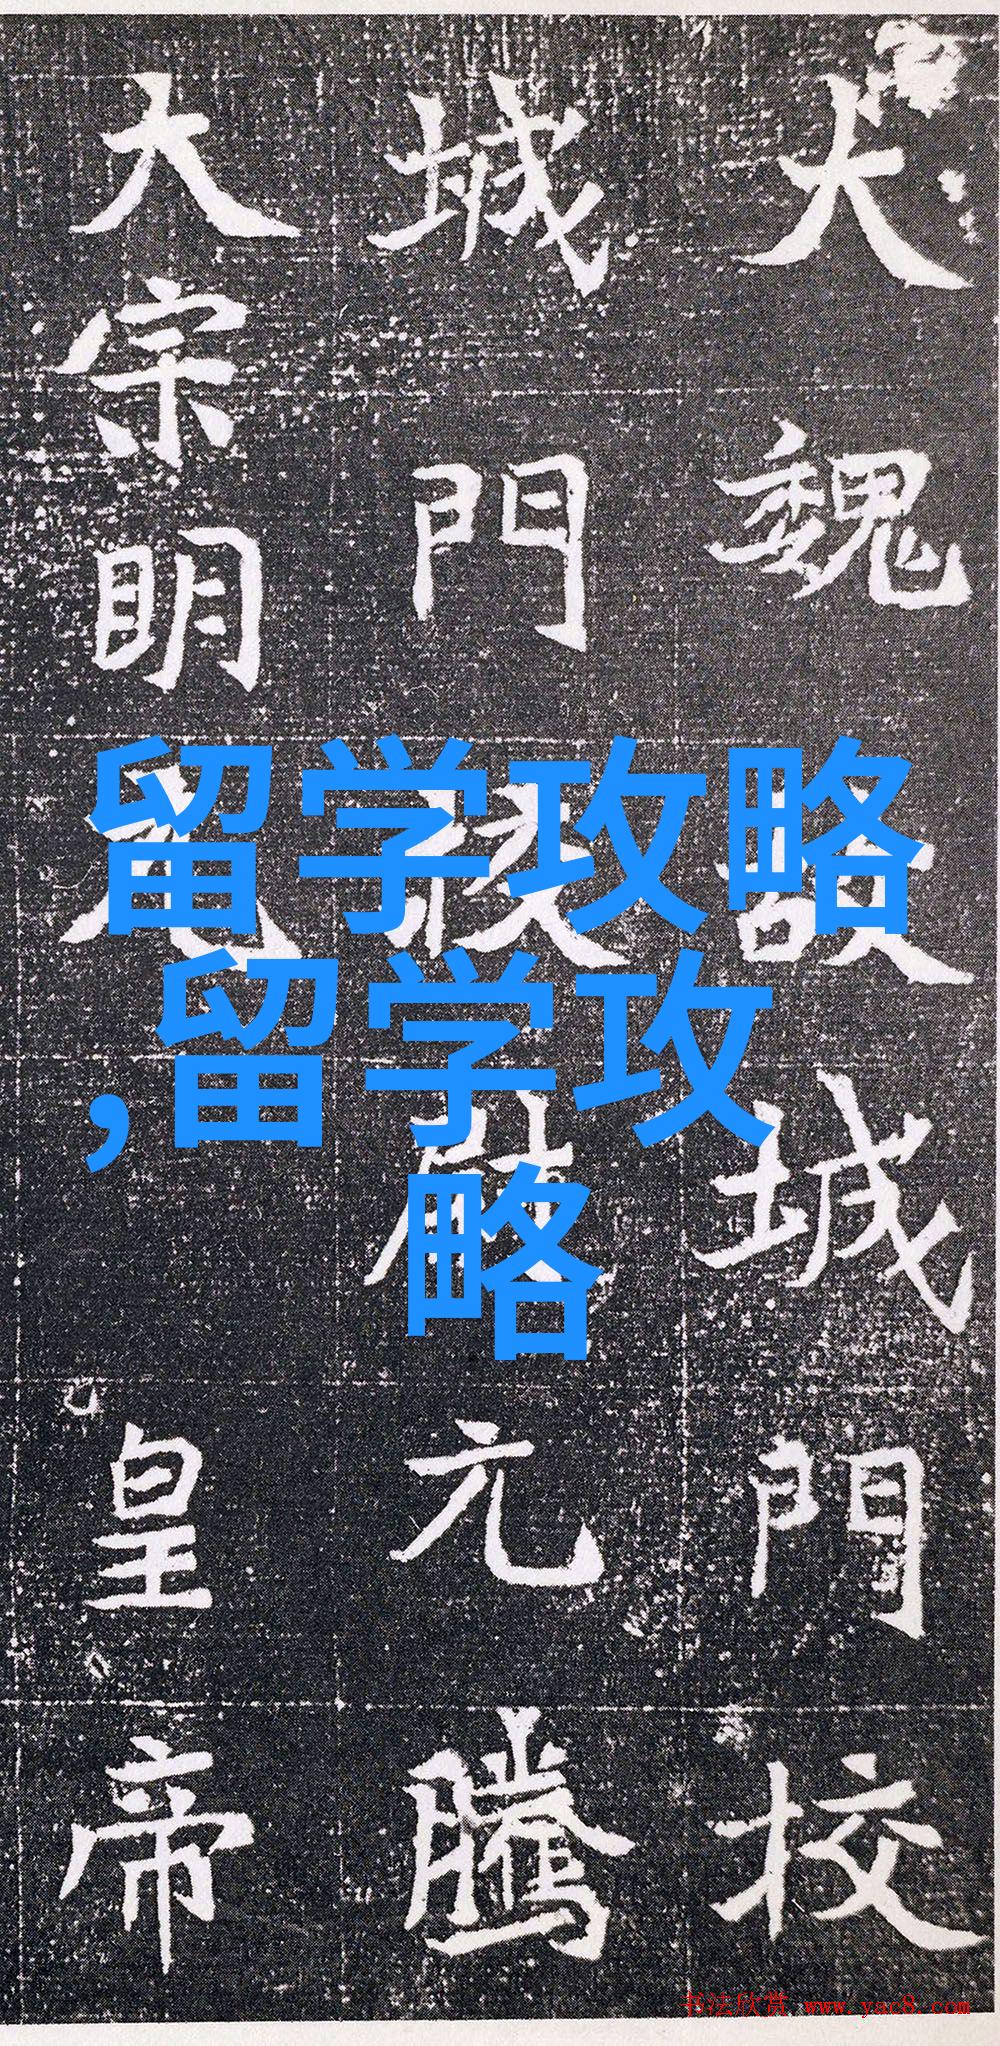 大魏城門校
城門元騰
大宗明皇帝
留学攻略
,留学攻
略
书法欣赏 www.yac8.com